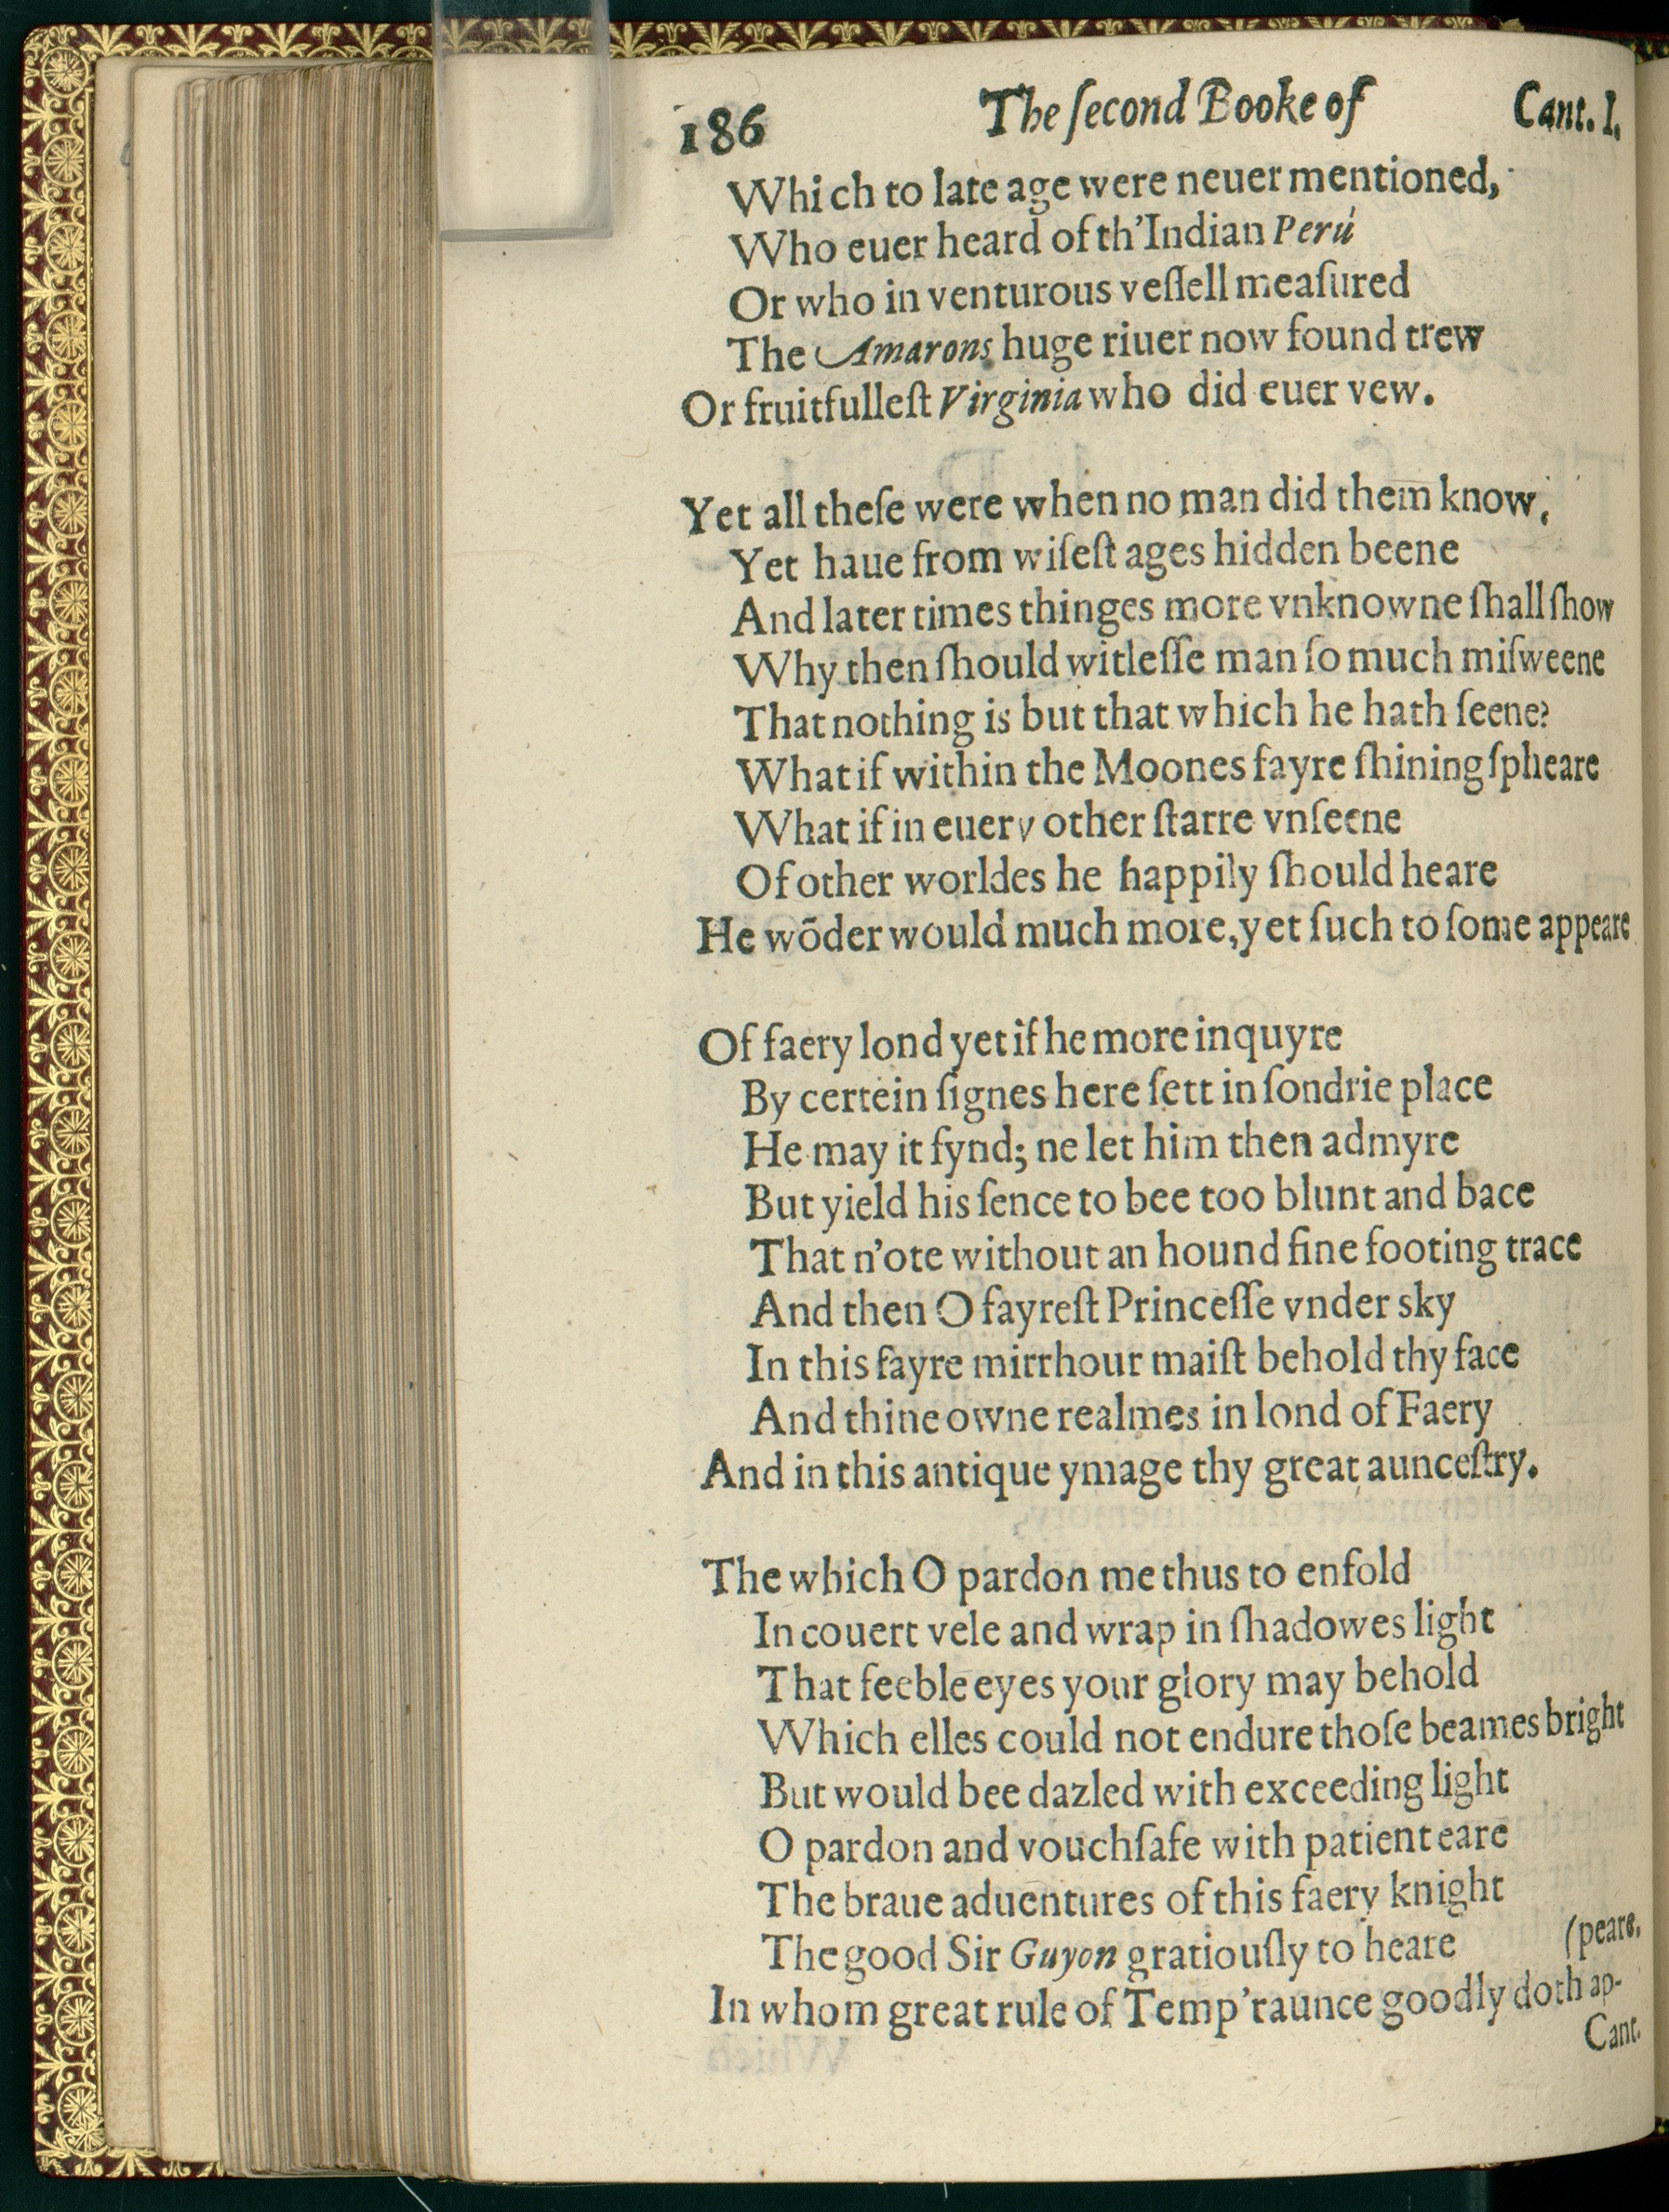 186 The ſecond Booke of Cant. I.
Which to late age were neuer mentioned,
Who euer heard of th'Indian Perú
Or who in venturous veſſell meaſured
The Amarons huge riuer now found trew
Or fruitfulleſt Virginia who did euer vew.
Yet all theſe were when no man did them know,
Yet haue from wiſeſt ages hidden beene
And later times thinges more vnknowne ſhall ſhow
Why then ſhould witleſſe man ſo much miſweene
That nothing is but that which he hath ſeene?
What if within the Moones fayre ſhining ſpheare
What if in euery other ſtarre vnſeene
Of other worldes he happily ſhould heare
He wõder would much more, yet ſuch to ſome appeare
Of faery lond yet if he more inquyre
By certein ſignes here ſett in ſondrie place
He may it fynd; ne let him then admyre
But yield his ſence to bee too blunt and bace
That n'ote without an hound fine footing trace
And then O fayreſt Princeſſe vnder sky
In this fayre mirrhour maiſt behold thy face
And thine owne realmes in lond of Faery
And in this antique ymage thy great aunceſtry.
The which O pardon me thus to enfold
In couert vele and wrap in ſhadowes light
That feeble eyes your glory may behold
Which elles could not endure thoſe beames bright
But would bee dazled with exceeding light
O pardon and vouchſafe with patient eare
The braue aduentures of this faery knight
The good Sir Guyon gratiouſly to heare
(peare.
In whom great rule of Temp'raunce goodly doth ap-
Cant.